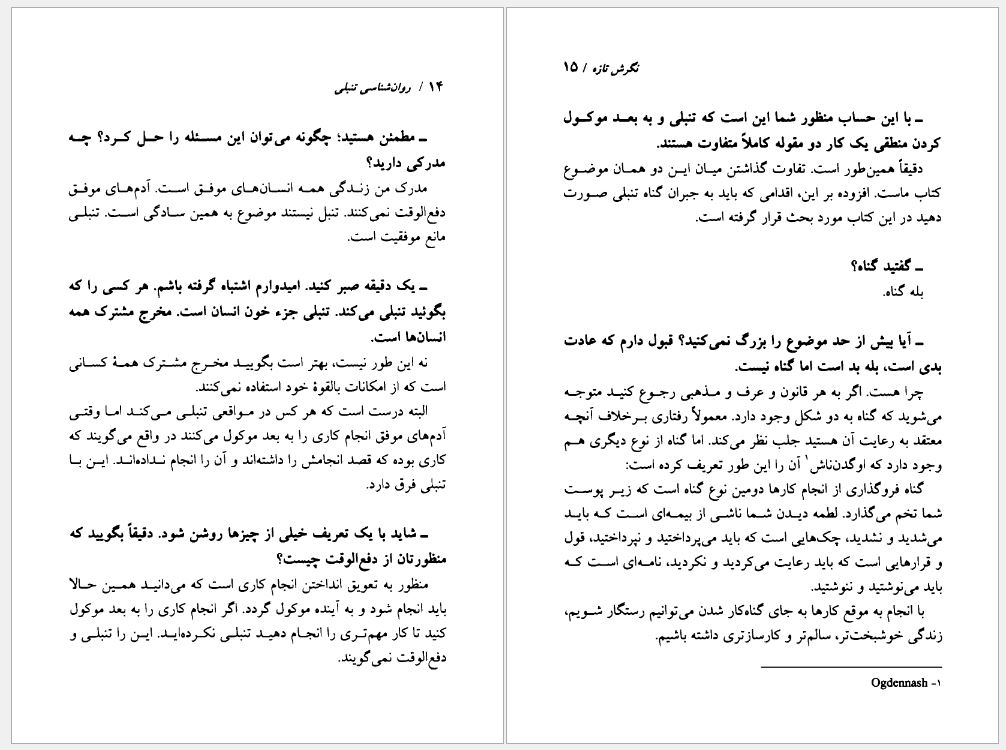 ۱۴ / روان‌شناسی تنبلی
ـ مطمئن هستید؛ چگونه می‌توان این مسئله را حل کرد؟ چه
مدرکی دارید؟
مدرک من زندگی همه انسان‌های موفق است. آدم‌های موفق
دفع‌الوقت نمی‌کنند. تنبل نیستند موضوع به همین سادگی است. تنبلی
مانع موفقیت است.
ـ یک دقیقه صبر کنید. امیدوارم اشتباه گرفته باشم. هر کسی را که
بگوئید تنبلی می‌کند. تنبلی جزء خون انسان است. مخرج مشترک همه
انسان‌ها است.
نه این طور نیست، بهتر است بگویید مخرج مشترک همهٔ کسانی
است که از امکانات بالقوهٔ خود استفاده نمی‌کنند.
البته درست است که هر کس در مواقعی تنبلی می‌کند اما وقتی
آدم‌های موفق انجام کاری را به بعد موکول می‌کنند در واقع می‌گویند که
کاری بوده که قصد انجامش را داشته‌اند و آن را انجام نداده‌اند. این با
تنبلی فرق دارد.
ـ شاید با یک تعریف خیلی از چیزها روشن شود. دقیقاً بگویید که
منظورتان از دفع‌الوقت چیست؟
منظور به تعویق انداختن انجام کاری است که می‌دانید همین حالا
باید انجام شود و به آینده موکول گردد. اگر انجام کاری را به بعد موکول
کنید تا کار مهم‌تری را انجام دهید تنبلی نکرده‌اید. این را تنبلی و
دفع‌الوقت نمی‌گویند.
نگرش تازه / ۱۵
ـ با این حساب منظور شما این است که تنبلی و به بعد موکول
کردن منطقی یک کار دو مقوله کاملاً متفاوت هستند.
دقیقاً همین‌طور است. تفاوت گذاشتن میان این دو همان موضوع
کتاب ماست. افزوده بر این، اقدامی که باید به جبران گناه تنبلی صورت
دهید در این کتاب مورد بحث قرار گرفته است.
ـ گفتید گناه؟
بله گناه.
ـ آیا بیش از حد موضوع را بزرگ نمی‌کنید؟ قبول دارم که عادت
بدی است، بله بد است اما گناه نیست.
چرا هست. اگر به هر قانون و عرف و مذهبی رجوع کنید متوجه
می‌شوید که گناه به دو شکل وجود دارد. معمولاً رفتاری برخلاف آنچه
معتقد به رعایت آن هستید جلب نظر می‌کند. اما گناه از نوع دیگری هم
وجود دارد که اوگدن‌ناش۱ آن را این طور تعریف کرده است:
گناه فروگذاری از انجام کارها دومین نوع گناه است که زیر پوست
شما تخم می‌گذارد. لطمه دیدن شما ناشی از بیمه‌ای است که باید
می‌شدید و نشدید، چک‌هایی است که باید می‌پرداختید و نپرداختید، قول
و قرارهایی است که باید رعایت می‌کردید و نکردید، نامه‌ای است که
باید می‌نوشتید و ننوشتید.
با انجام به موقع کارها به جای گناه‌کار شدن می‌توانیم رستگار شویم،
زندگی خوشبخت‌تر، سالم‌تر و کارسازتری داشته باشیم.
۱- Ogdennash